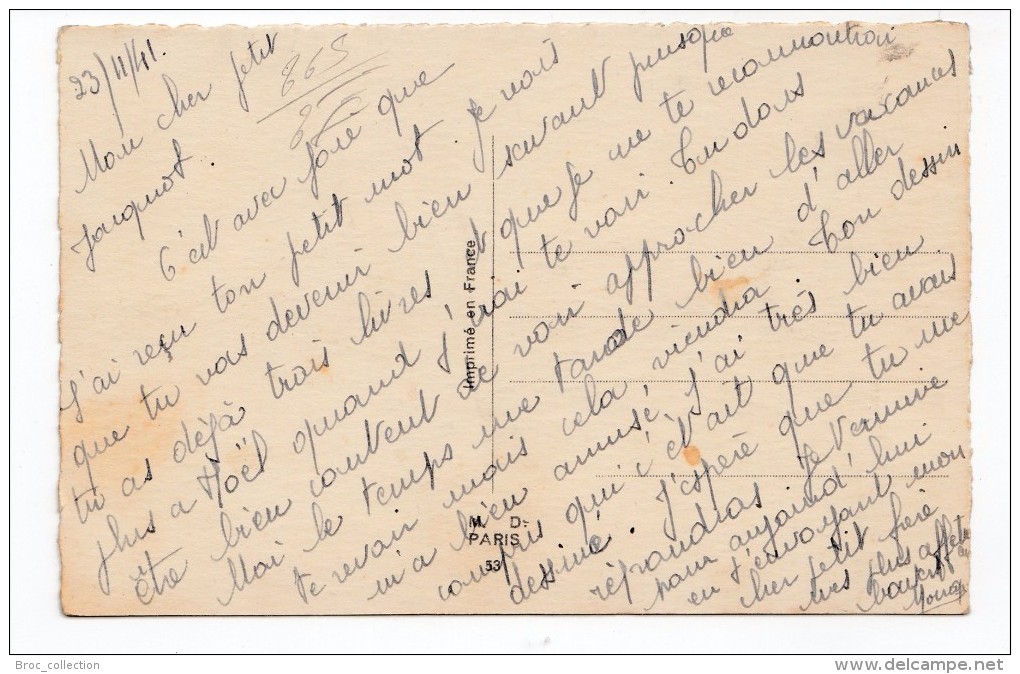 23/11/41.
865
Mon cher petit
Jacquot.
C'est avec joie que
J'ai reçu ton petit mot. Je vois
que tu vas devenir bien savant puisque
tu as déjà trois livres et que je ne te reconnaitrai
plus a Noël quand j'irai te voir. Tu dois
être bien content de voir approcher les vacances
Moi le temps me tarde bien d'aller
te revoir mais cela viendra. Ton dessin
m'a bien amusé, j'ai très bien
compris qui c'était que tu avais
dessiné. J'espère que tu me
répondras. Je termine
pour aujourd'hui
en t'envoyant mon
cher petit frère
mes plus affectueux
baisers
Imprimé en France
M. D.
PARIS
53
Broc_collection
www.delcampe.net